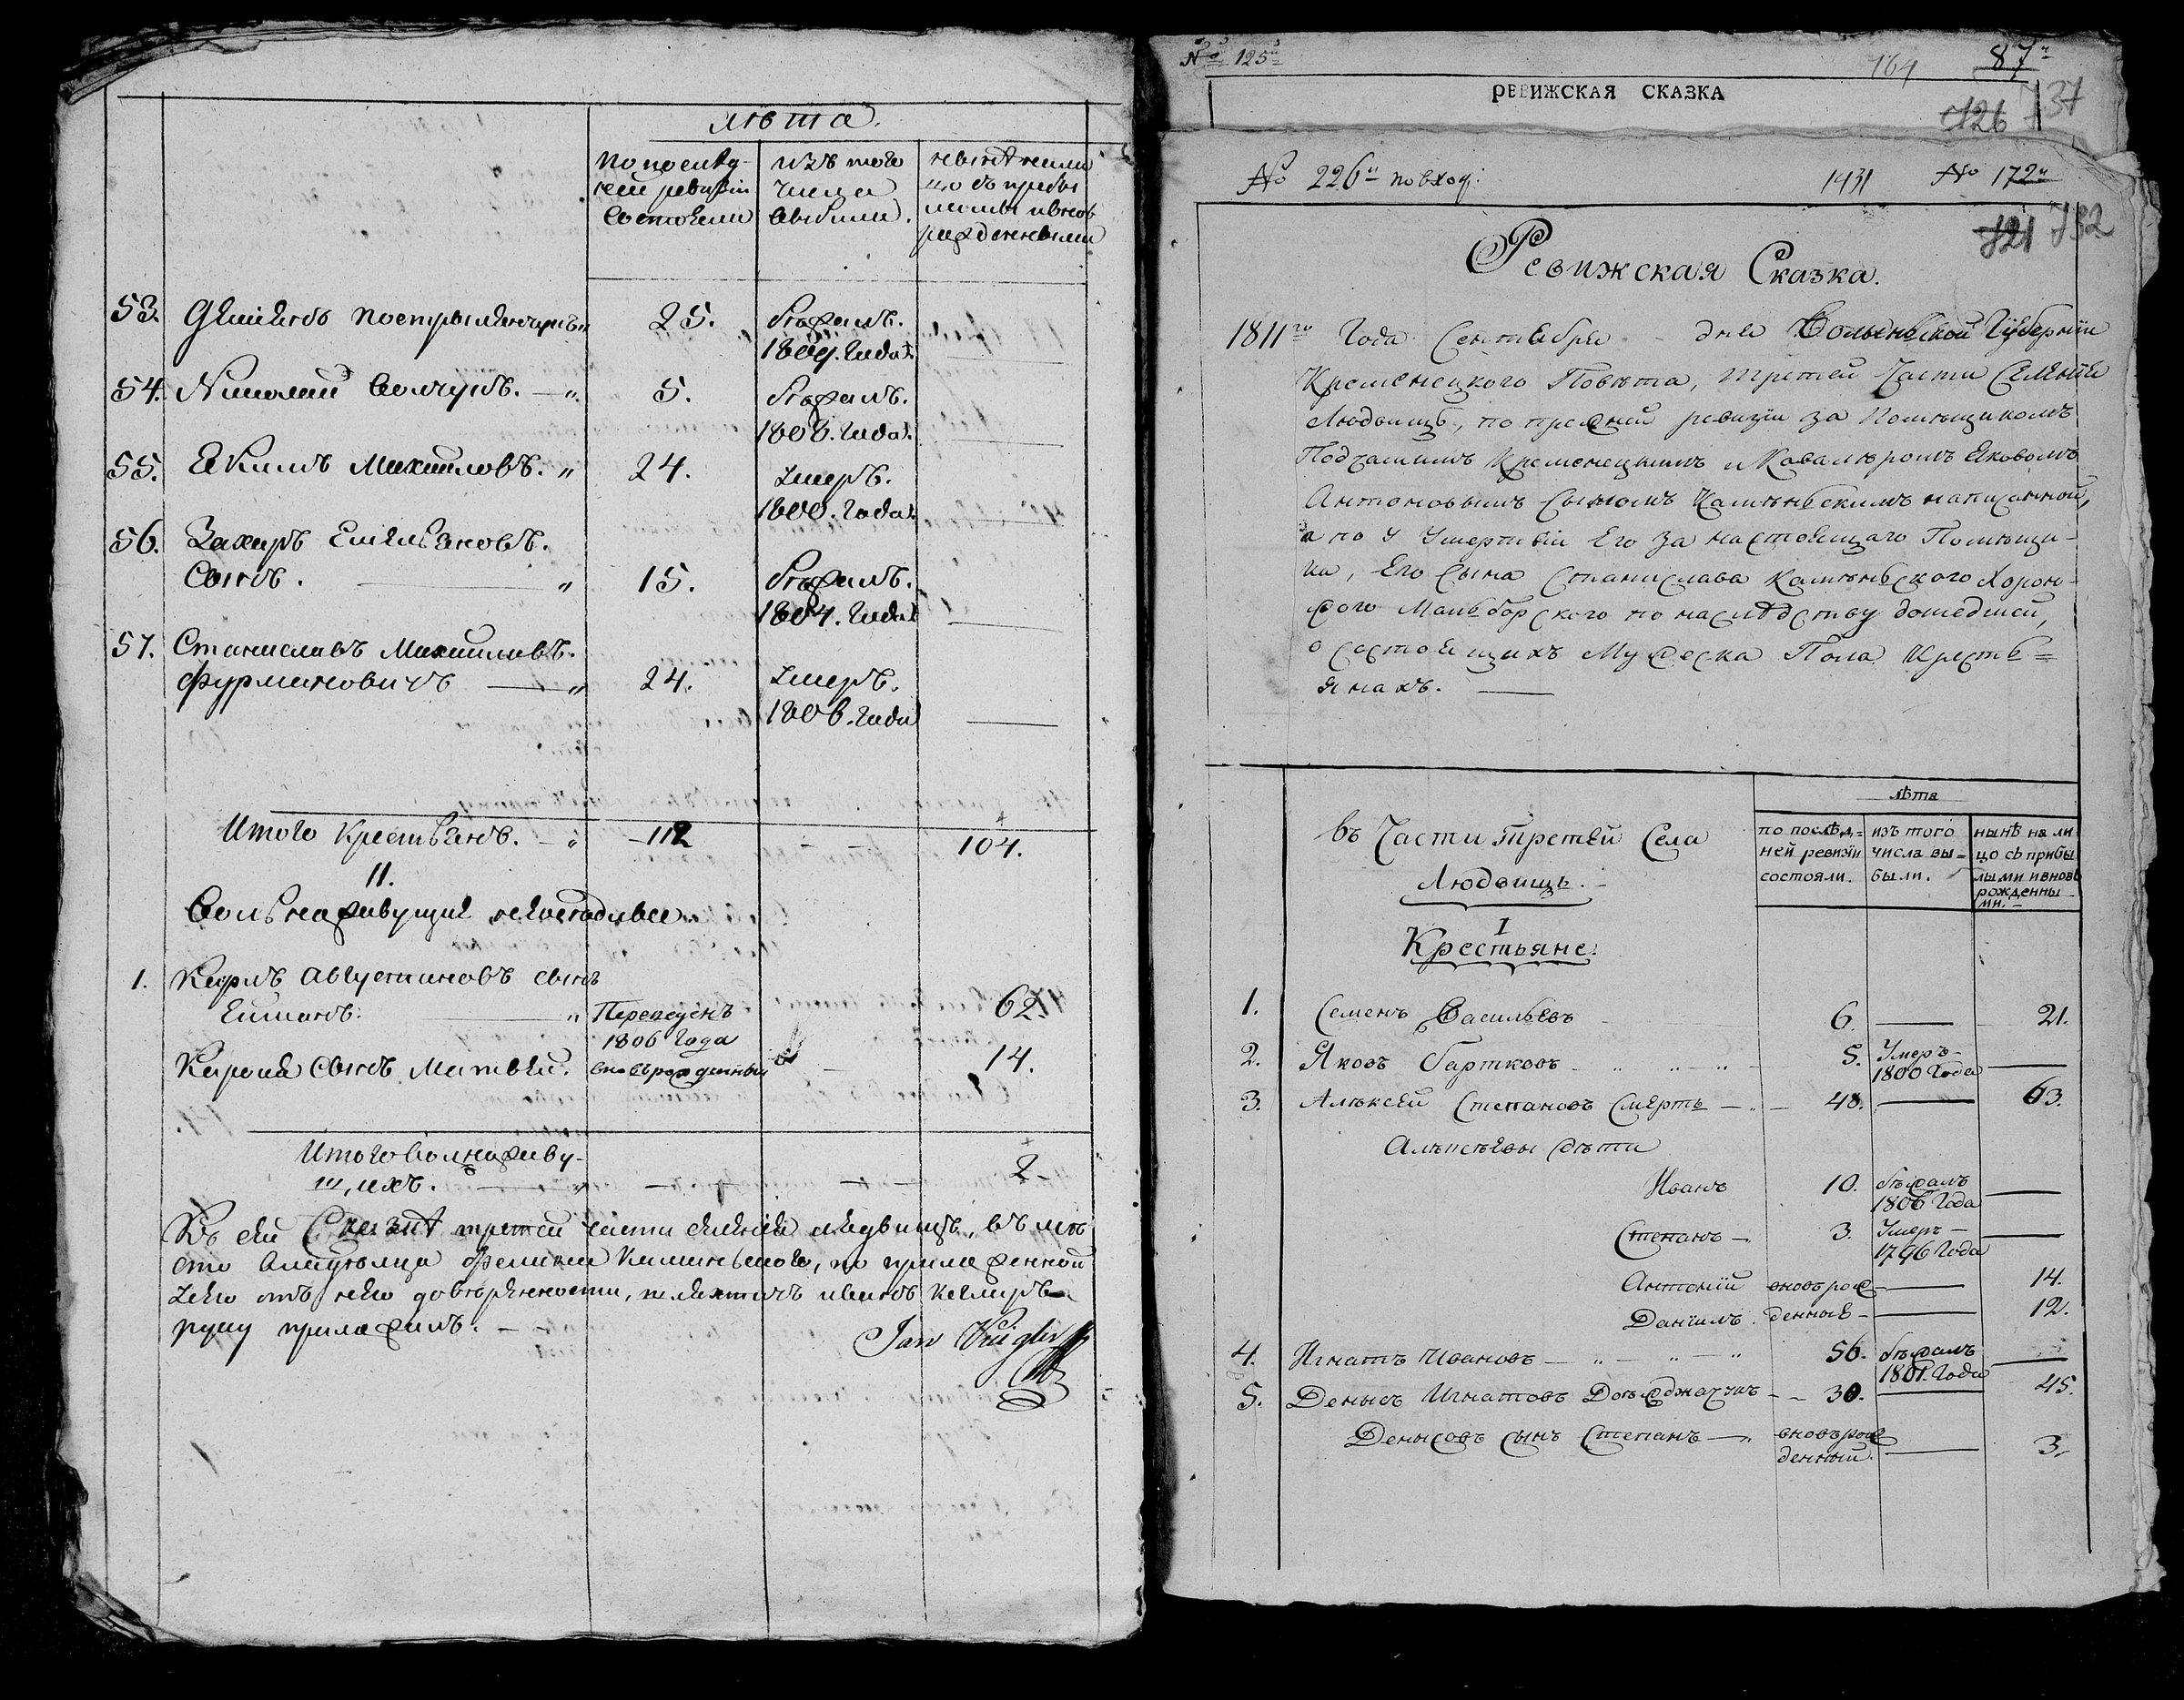 лѣта.
по послѣд-
ней ревизіи
состояли
изъ того
числа
выбыли.
нынѣ на ли
цо съ прибы
лыми и вновь
рожденными
53. 25. бѣжалъ.
1809. года
54. Николай 5. бѣжалъ.
1808. года
55. Екимъ Михайловъ. 24. Умеръ.
1800. года
56. Захаръ Емельяновъ.
Сынъ. 15. бѣжалъ.
1804. года
57. Станиславъ Михайловъ.
Фурмановичъ 24. Умеръ.
1806. года
Итого Крестьянъ. 112 104.
II.
Вольнаживущие
1. Карлъ Августиновъ сынъ
Переведенъ 62.
1806 года
Карола Сынъ Матвей. вновьрожденный 14.
Итого Волнаживу-
щихъ. 2
Къ сей Сказкѣ третей части селения Людвищъ, въ мѣ
сто Владѣльца Феликса, по приложенной
отъ него довѣренности, шляхтичъ
руку приложилъ.
Jan
№ 125
164 87
РЕВИЖСКАЯ СКАЗКА
126 737
№ 226 по вход:
1431 № 172
721 732
Ревижская Сказка.
1811го Года Сентября дня Волынской Губерніи
Кременецкого Повѣта, третей Части Селенія
Людвищъ, по прежней ревизіи за Помѣщикомъ
Подчашимъ Кременецкимъ и Кавалеромъ Яковомъ
Антоновымъ сыномъ Каменьскимъ написанной,
а по Умертвіи Его за настоящаго Помѣщи-
ка, Его Сына Станислава Каменьского Хорон-
жого Мальборского по наслѣдству дошедшей,
о состоящихъ Мужеска Пола Кресть=
янахъ.
въ Части третей Села
Людвищъ.
I
Крестьяне.
лѣта
по послѣд,=
ней ревизіи
состояли.
изъ того
числа вы=
были.
нынѣ на ли
цо съ прибы
лыми и вновь
рожденны
ми.
1. Семенъ Васильевъ 6. 21.
2. Яковъ Бартковъ 5. Умеръ
1800 Года
3. Алексѣй Степановъ Смерть 48. 63.
Алексѣевы дѣти
Иванъ 10. бѣжалъ
1806 Года
Степанъ 3. Умеръ
1796 Года
Антоній вновь рож 14.
Даніилъ денные 12.
4. Игнатъ Ивановъ 56. бѣжалъ
1801. Года
5. Денысъ Игнатовъ 30. 45.
Денысовъ сынъ Степанъ вновь рож
денный. 3.